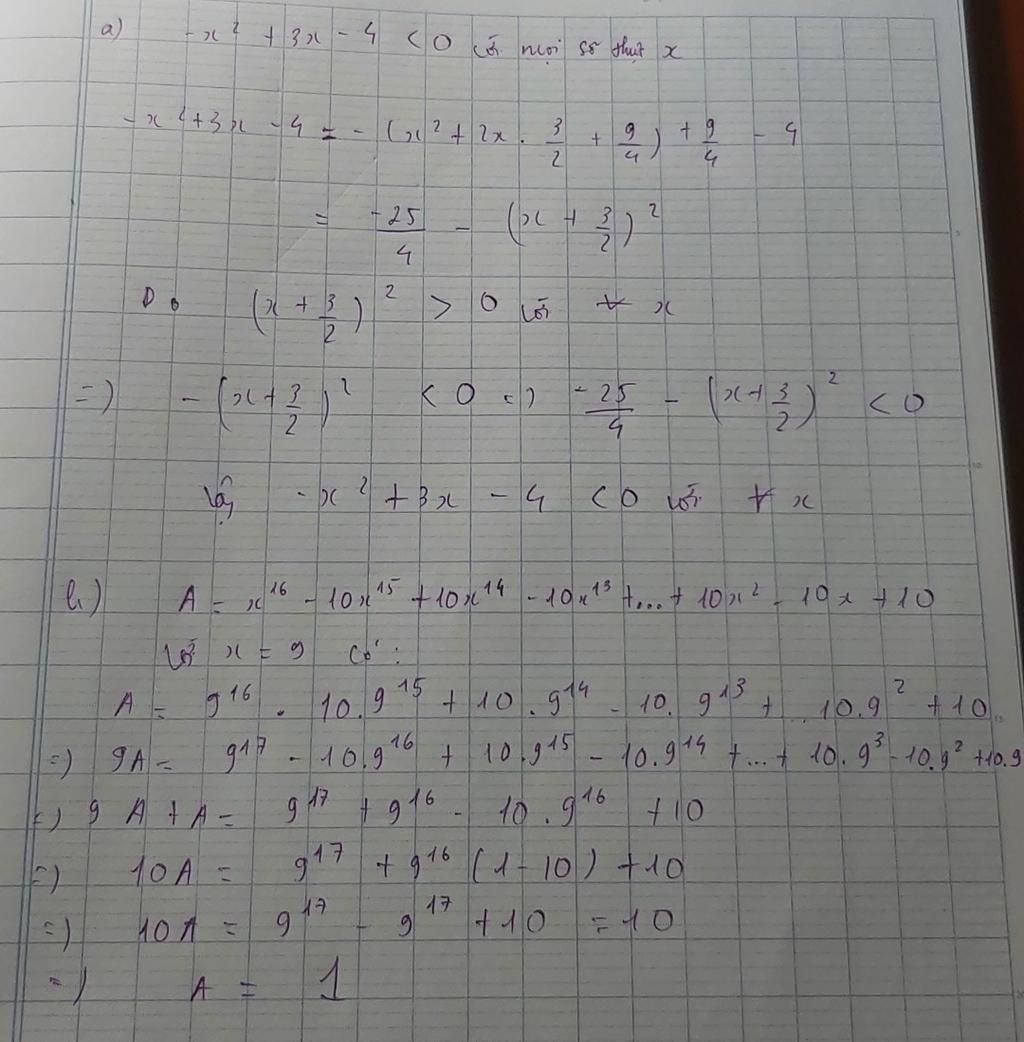 a) -x² + 3x - 4 < 0 với mọi số thực x
-x² + 3x - 4 = - (x² + 2x . 3/2 + 9/4) + 9/4 - 4
= -25/4 - (x + 3/2)²
Do (x + 3/2)² > 0 với ∀ x
=) - (x + 3/2)² < 0 =) -25/4 - (x + 3/2)² < 0
Vậy -x² + 3x - 4 < 0 với ∀ x
b) A = x¹⁶ - 10x¹⁵ + 10x¹⁴ - 10x¹³ + ... + 10x² - 10x + 10
Với x = 9 có:
A = 9¹⁶ - 10.9¹⁵ + 10.9¹⁴ - 10.9¹³ + .. 10.9² + 10
=) 9A = 9¹⁷ - 10.9¹⁶ + 10.9¹⁵ - 10.9¹⁴ + ... + 10.9³ - 10.9² + 10.9
=) 9A + A = 9¹⁷ + 9¹⁶ - 10.9¹⁶ + 10
=) 10A = 9¹⁷ + 9¹⁶ (1 - 10) + 10
=) 10A = 9¹⁷ - 9¹⁷ + 10 = 10
=) A = 1